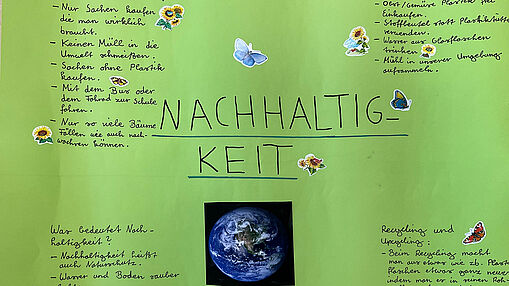 - Nur Sachen kaufen
die man wirklich
braucht.
- Keinen Müll in die
Umwelt schmeißen.
- Sachen ohne Plastik
kaufen.
- Mit dem Bus oder
dem Fahrad zur Schule
fahren.
- Nur so viele Bäume
Fällen wie auch nach-
wachsen können.
- Obst/Gemüse Plastik frei
Einkaufen.
- Stoffbeutel statt Plastiktüte
verwenden.
- Wasser aus Glasflaschen
trinken
- Mühl in unserer Umgebung
aufsammeln.
NACHHALTIG-
KEIT
Was bedeutet Nach-
haltigkeit?
- Nachhaltigkeit heißt
auch Naturschutz.
- Wasser und Boden sauber
Recycling und
Upcycling:
- Beim Recycling macht
man aus etwas wie zb. Plastik
flaschen etwas ganz neues
indem man es in seinen Roh-